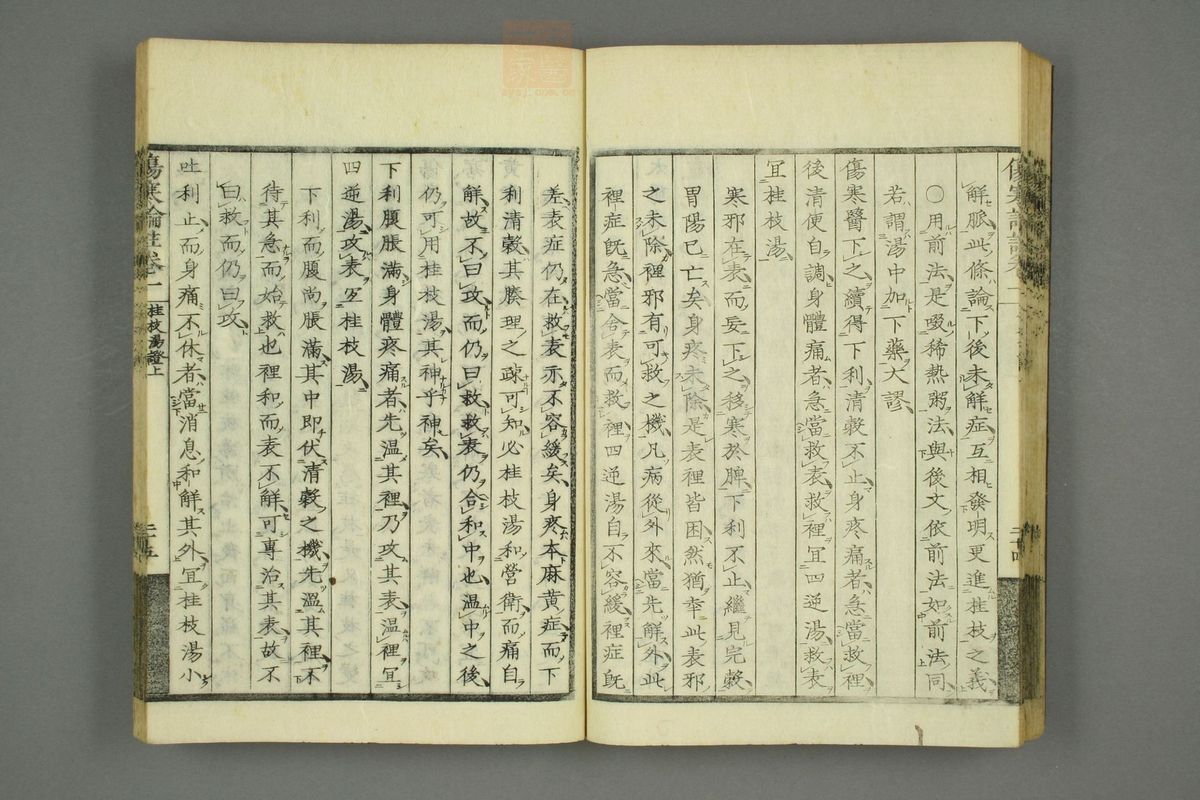 解肌此條論下後未解症互相發明更進桂枝之義
〇用前法是啜稀熱粥法與後文依前法如前法同
若謂湯中加下藥大謬
傷寒醫下之續得下利清穀不止身疼痛者急當救裡
後清便自調身體痛者急當救表救裡宜四逆湯救表
宜桂枝湯
寒邪在表而妄下之移寒於脾下利不止繼見完穀
胃陽已亡矣身疼未除是表裡皆困然猶幸此表邪
之未除裡邪有可救之機凡病從外來當先解外此
裡症旣急當舍表而救裡四逆湯自不容緩裡症旣
差表症仍在救表亦不容緩矣身疼本麻黃症而下
利清穀其腠理之疎可知必桂枝湯和營衛而痛自
解故不曰攻而仍曰救救表仍合和中也温中之後
仍可用桂枝湯其神乎神矣
下利腹脹滿身體疼痛者先温其裡乃攻其表温裡宜
四逆湯攻表宜桂枝湯
下利而腹尚脹滿其中即伏清穀之機先溫其裡不
待其急而始救也裡和而表不解可專治其表故不
曰救而仍曰攻
吐利止而身痛不休者當消息和解其外宜桂枝湯小
傷寒論註卷一
桂枝湯證上
二十五
二十四